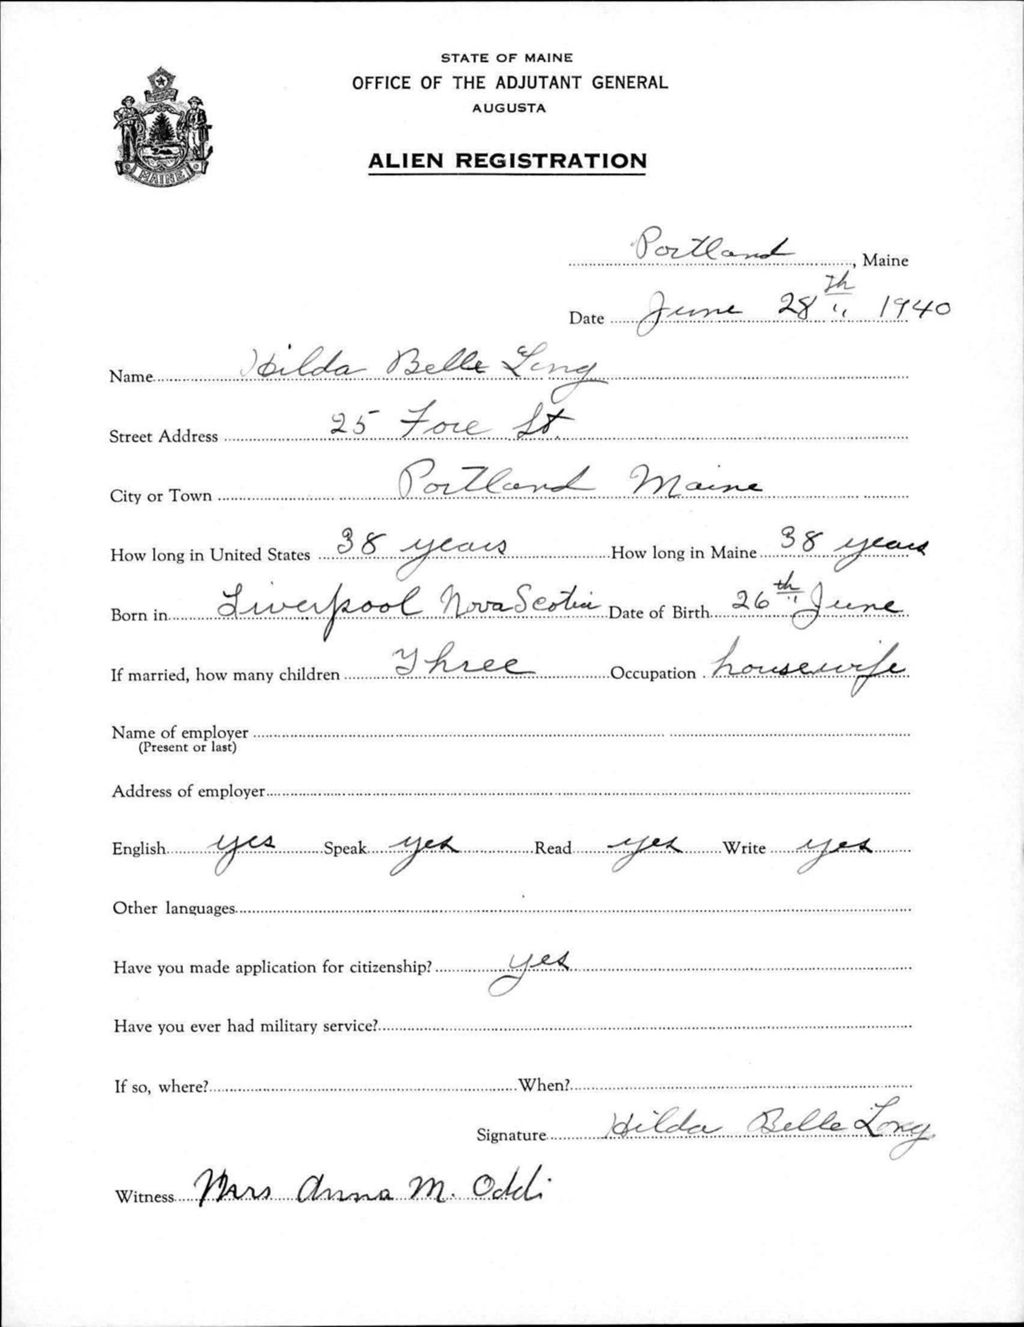 STATE OF MAINE
OFFICE OF THE ADJUTANT GENERAL
AUGUSTA
ALIEN REGISTRATION
MAINE
Portland, Maine
Date June 28th 1940
Name Hilda Belle Long
Street Address 25 Fore St.
City or Town Portland Maine
How long in United States 38 years How long in Maine 38 years
Born in Liverpool Nova Scotia Date of Birth 26th June
If married, how many children Three Occupation housewife
Name of employer
(Present or last)
Address of employer
English yes Speak yes Read yes Write yes
Other languages
Have you made application for citizenship? yes
Have you ever had military service?
If so, where? When?
Signature Hilda Belle Long
Witness Mrs Anna M. Oddi